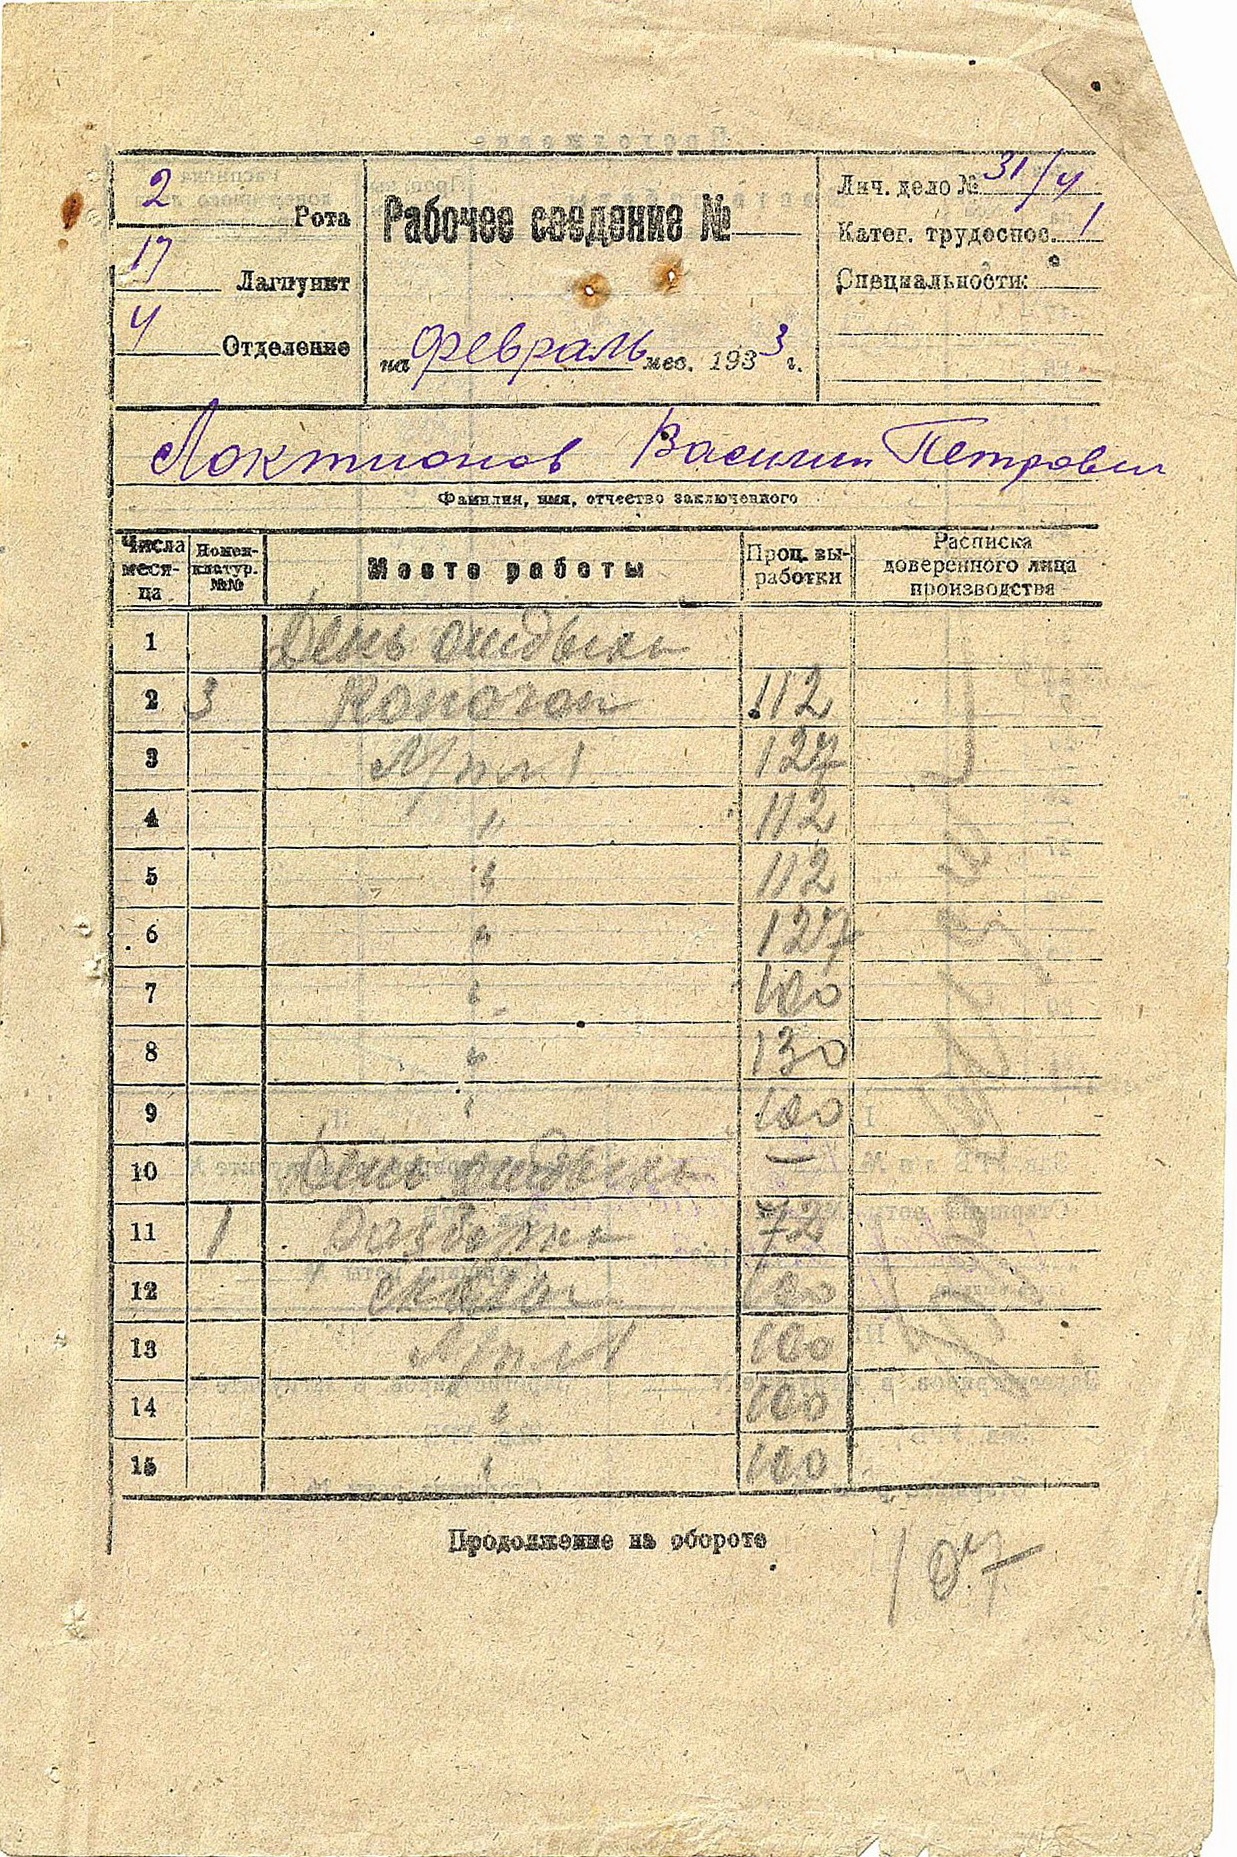 2 Рота
17 Лагпункт
4 Отделение
Рабочее сведение №
на февраль мес. 1933 г.
Лич. дело № 31/4
Катег. трудоспос. 1
Специальности:
Локтионов Василий Петрович
Фамилия, имя, отчество заключенного
Числа меся-ца Номен-клатур. №№ Место работы Проц. вы-работки Расписка доверенного лица производства
1 День отдыха
2 3 112
3 127
4 " 112
5 " 112
6 " 127
7 " 100
8 " 130
9 " 100
10 День отдыха —
11 1 72
12 100
13 100
14 " 100
15 " 100
Продолжение на обороте
107